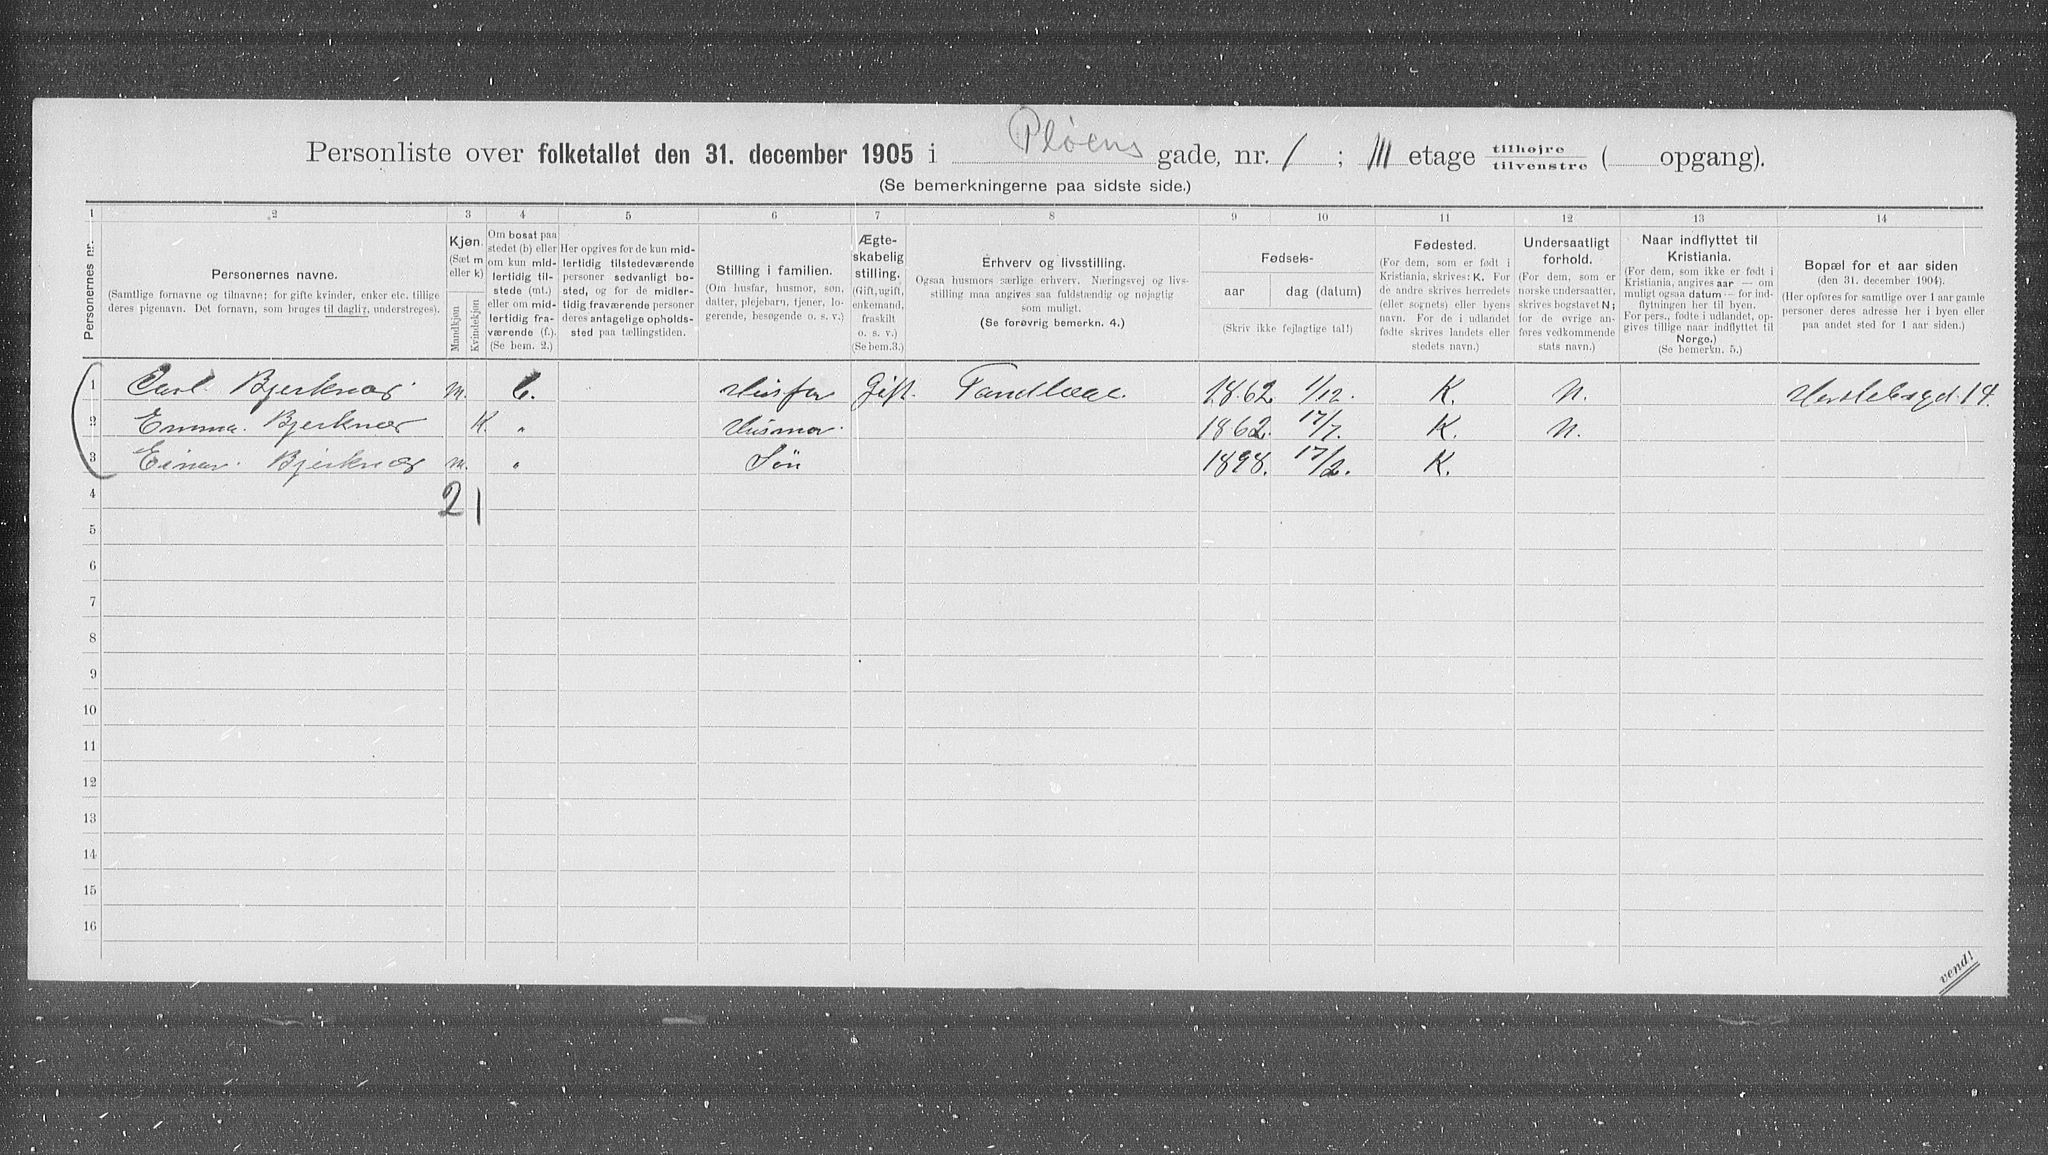 Personliste over folketallet den 31. december 1905 i Pløens gade, nr. 1 ; III etage tilhøjre tilvenstre ( opgang).
(Se bemerkningerne paa sidste side.)
1 2 3 4 5 6 7 8 9 10 11 12 13 14
Personernes nr.
Personernes navne.
(Samtlige fornavne og tilnavne; for gifte kvinder, enker etc. tillige
deres pigenavn. Det fornavn, som bruges til daglig, understreges).
Kjøn.
(Sæt m
eller k)
Mandkjøn
Kvindekjøn
Om bosat paa
stedet (b) eller
om kun mid-
lertidig til-
stede (mt.)
eller om mid-
lertidig fra-
værende (f.).
(Se bem. 2.)
Her opgives for de kun mid-
lertidig tilstedeværende
personer sedvanligt bo-
sted, og for de midler-
tidig fraværende personer
deres antagelige opholds-
sted paa tællingstiden.
Stilling i familien.
(Om husfar, husmor, søn,
datter, plejebarn, tjener, lo-
gerende, besøgende o. s. v.)
Ægte-
skabelig
stilling.
(Gift, ugift,
enkemand,
fraskilt
o. s. v.)
(Se bem.3.)
Erhverv og livsstilling.
Ogsaa husmors særlige erhverv. Næringsvej og livs-
stilling maa angives saa fuldstændig og nøjagtig
som muligt.
(Se forøvrig bemerkn. 4.)
Fødsels-
aar dag (datum)
(Skriv ikke fejlagtige tal!)
Fødested.
(For dem, som er født i
Kristiania, skrives: K. For
de andre skrives herredets
(eller sognets) eller byens
navn. For de i udlandet
fødte skrives landets eller
stedets navn.)
Undersaatligt
forhold.
(For dem, som er
norske undersaatter,
skrives bogstavet N;
for de øvrige an-
føres vedkommende
stats navn.)
Naar indflyttet til
Kristiania.
(For dem, som ikke er født i
Kristiania, angives aar — om
muligt ogsaa datum — for ind-
flytningen her til byen.
For pers., fødte i udlandet, op-
gives tillige naar indflyttet til
Norge.)
(Se bemerkn. 5.)
Bopæl for et aar siden
(den 31. december 1904).
(Her opføres for samtlige over 1 aar gamle
personer deres adresse her i byen eller
paa andet sted for 1 aar siden.)
1 Carl. Bjerknær m. b. Husfar Gift. Tandlæge 1862 1/12. K. N. 14.
2 Emma. Bjerknær K. " Husmor. 1862. 17/7. K. N.
3 Einar. Bjerknær m. " Søn 1898. 17/2. K.
4 2 1
5
6
7
8
9
10
11
12
13
14
15
16
vend!